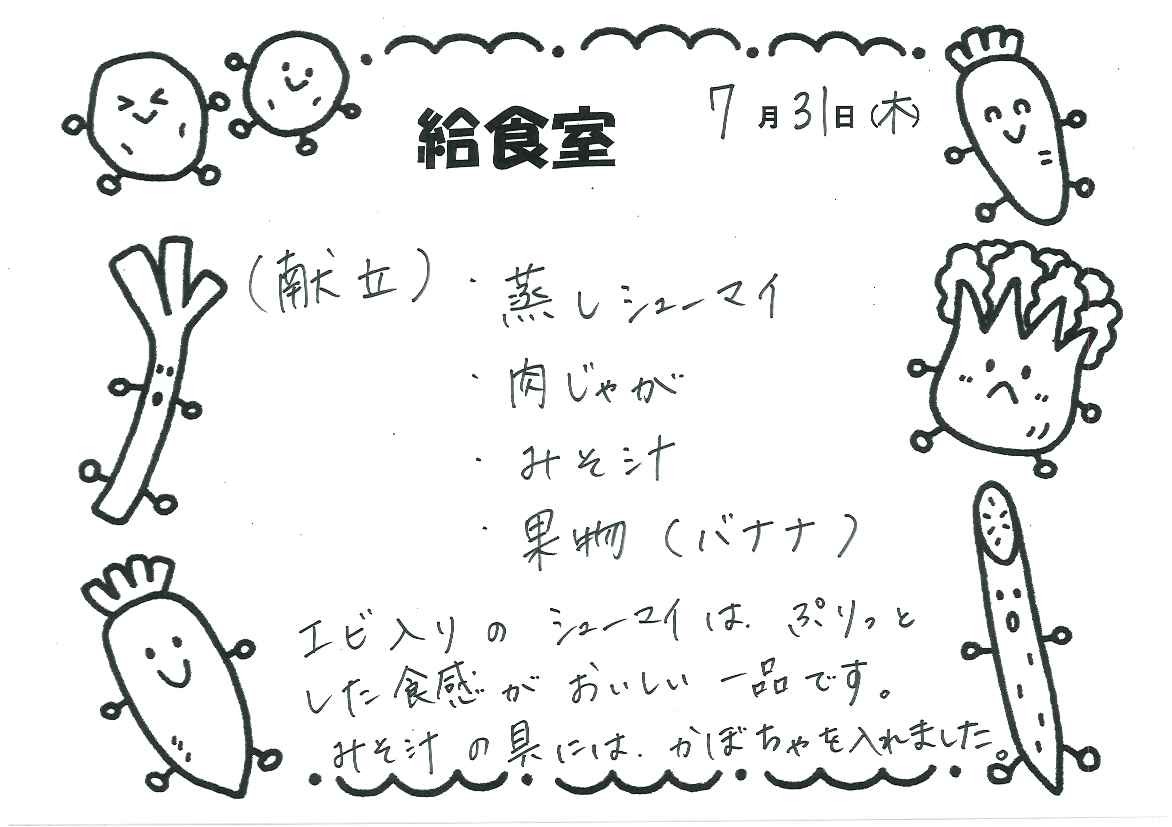 給食室 7月31日(木)
(献立)・蒸しシューマイ
・肉じゃが
・みそ汁
・果物(バナナ)
エビ入りのシューマイは、ぷりっと
した食感がおいしい一品です。
みそ汁の具には、かぼちゃを入れました。